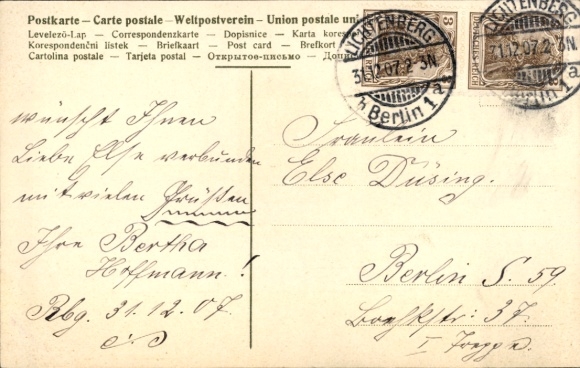 Postkarte – Carte postale – Weltpostverein – Union postale uni
Levelező-Lap — Correspondenzkarte — Dopisnice — Karta kores
Korespondenční lístek — Briefkaart — Post card — Brefkort
Cartolina postale — Tarjeta postal — Открытое-письмо —
LICHTENBERG
31.12.07.2-3N
b Berlin 1 a
3
LICHTENBERG
31.12.07.2-3N
Berlin 1 a
wünscht Ihnen
Liebe Else verbunden
mit vielen Grüßen
Ihre Bertha
Hoffmann!
Rbg. 31.12.07.
Fräulein
Else Düsing.
Berlin S. 59
37.
I Treppe.